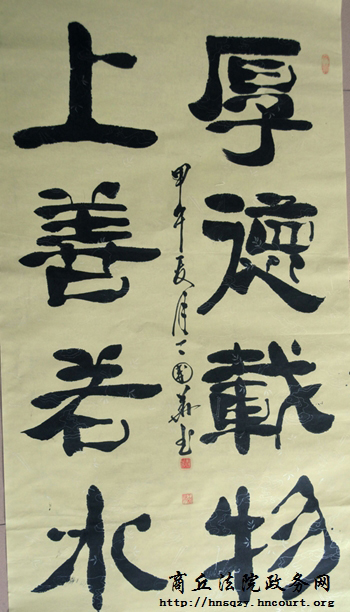 厚德载物
上善若水
甲午夏月
商丘法院政务网
http://hnsqzy.hncourt.org